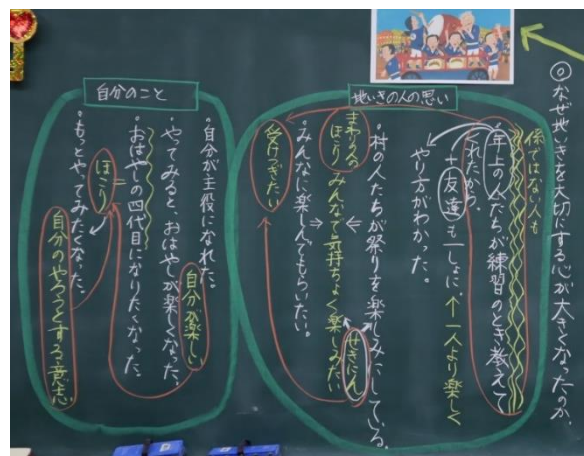 ◎なぜ地いきを大切にする心が大きくなったのか。
地いきの人の思い
係ではない人も
・年上の人たちが練習のとき教えて
くれたから。
+友達も一しょに。↑一人より楽しく
やり方がわかった。
・村の人たちが祭りを楽しみにしている。
せきにん
まわりの人の
ほこり
みんなで気持ちよく楽しみたい
・みんなに楽しんでもらいたい。
受けつぎたい
自分のこと
・自分が主役になれた。
自分が楽しい
・やってみると、おはやしが楽しくなった。
・おはやしの四代目になりたくなった。
=
ほこり
・もっとやってみたくなった。
自分のやろうとする意志